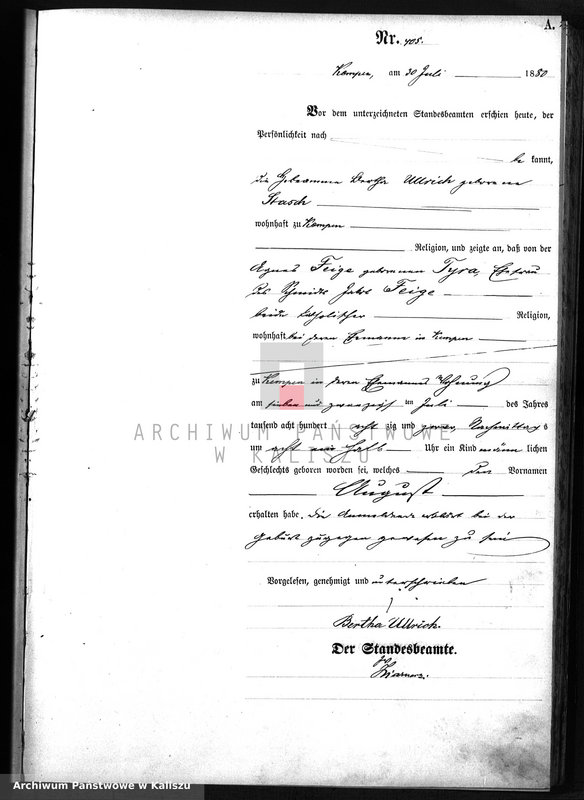 A.
Nr. 405.
Kempen, am 30 Juli 1880
Vor dem unterzeichneten Standesbeamten erschien heute, der
Persönlichkeit nach
be kannt,
die Hebeamme Bertha Ullrich geborene
Stasch
wohnhaft zu Kempen
Religion, und zeigte an, daß von der
Agnes Feige geborenen Tyra, Ehefrau
des Schmidts Jakob Feige
beide katholischer Religion,
wohnhaft bei deren Ehemanne in Kempen
zu Kempen in deren Ehemannes Wohnung
am sieben und zwanzigsten Juli des Jahres
tausend acht hundert acht zig und zwar Nachmittags
um acht ein halb Uhr ein Kind männ lichen
Geschlechts geboren worden sei, welches den Vornamen
August
erhalten habe. Die Anmeldende erklärt bei der
Geburt zugegen gewesen zu sein
Vorgelesen, genehmigt und unterschrieben
Bertha Ullrich.
Der Standesbeamte.
ARCHIWUM PAŃSTWOWE
W KALISZU
Archiwum Państwowe w Kaliszu